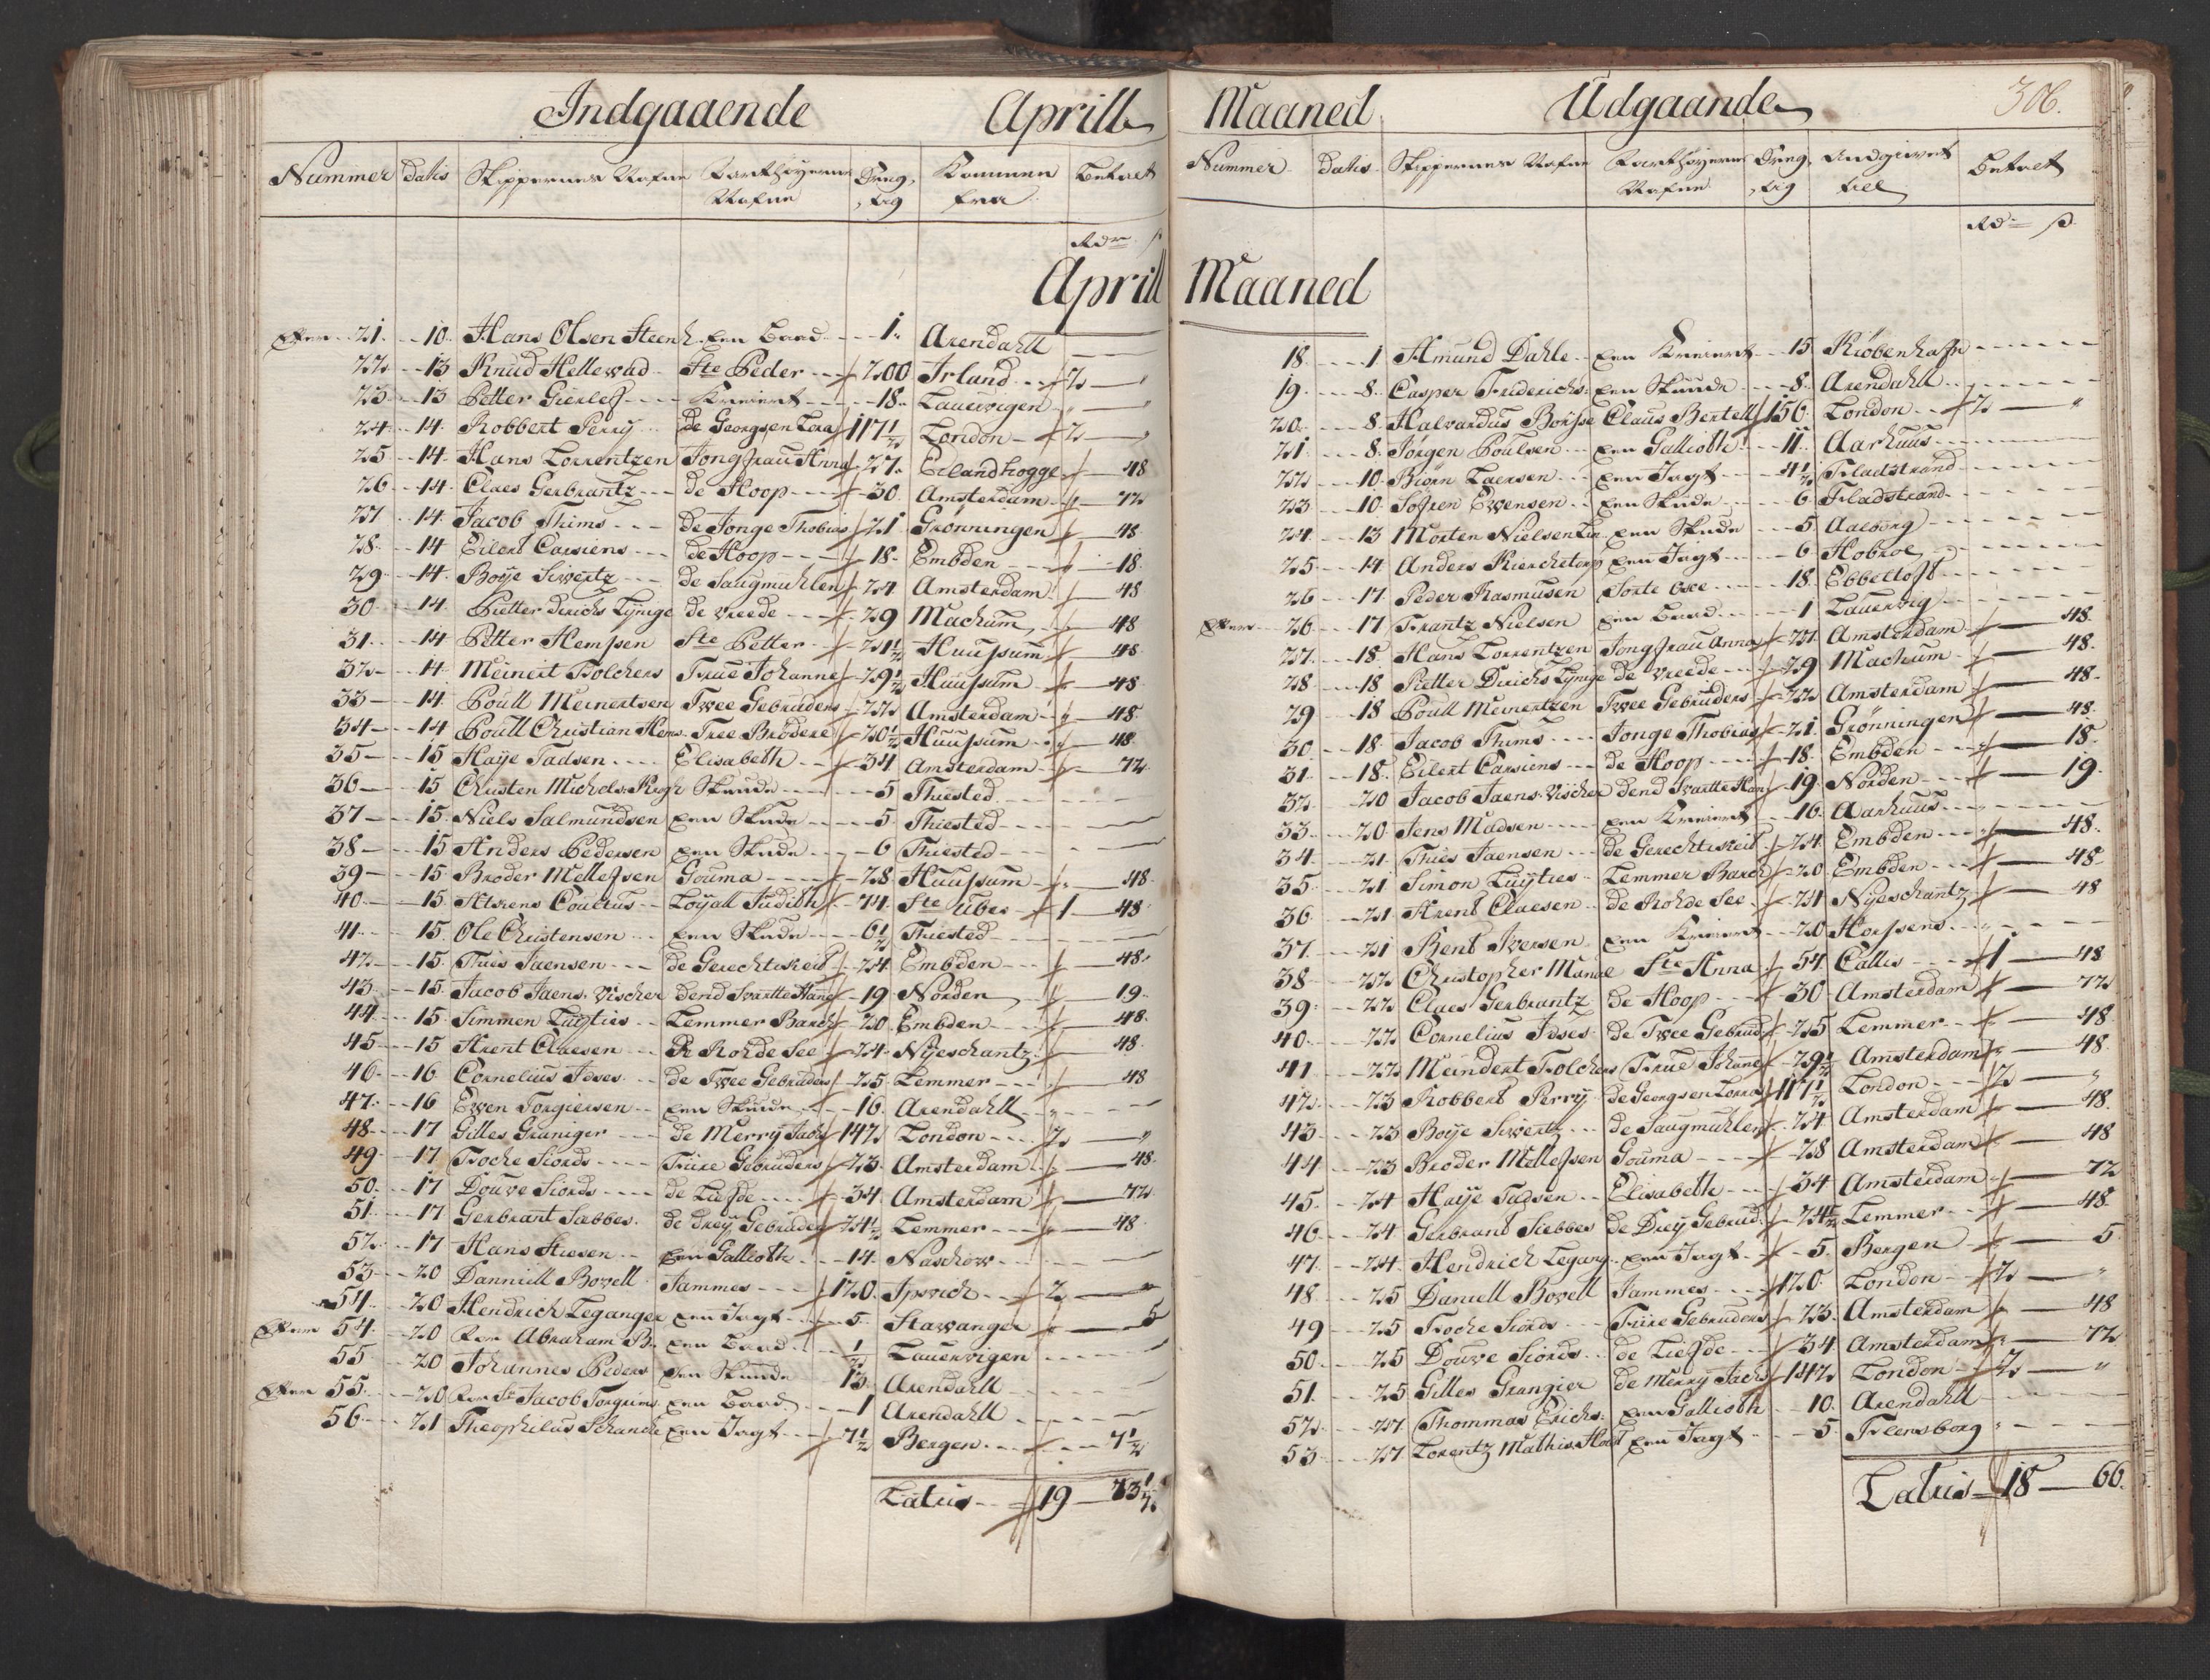 Indgaaende Aprill
Nummer datis Skippernes Nafne Farthøyernes Dreg, Kommen betalt
Nafne tig fra
Rdr ß
Aprill
21. 10. Hans Olsen Steenk. Een baad 1. Arendahll
22 13 Knud Hellewad Ste Peder 200 Irland 2 "
23 13 Petter Gierlef Kreiert 18. Lauervigen
24 14. Robbert Perry de Georgsen Lora 117½ London 2 "
25 14. Hans Lorrentzen Jongfrau Anna 27. Eilandhogge 48
26 14. Claes Gerbrantz de Hoop 30. Amsterdam 72
27 14. Jacob Thims de Jonge Thobias 21 Grønningen 48
28. 14 Eilert Carsiens de Hoop 18. Embden 18
29 14. Boye Siwertz de Saugmuhlen 24. Amsterdam 48
30. 14. Pietter Dirichs Lynige de Vreede 29 Machum 48
31. 14 Petter Hemsen Ste Petter 21½ Huussum 48
32 14. Meinert Folchers Frue Johanne 29½ Huussum 48
33 14. Poull Meinertsen Twee Gebruders 22 Amsterdam 48
34 14 Poull Christian Hems Tree Brødere 20½ Huussum 48
35 15 Haye Tadsen Elisabeth 34 Amsterdam 72
36 15 Christen Michels. Skude 5 Thiested
37 15. Niels Salmundsen Een Skude 5. Thiested
38 15 Anders Pedersen Een Skude 6 Thiested
39 15 Broder Mellefsen Gouma 28. Huussum 48
40. 15. Ahrens Coultus Loyall Judith 74. Ste Ubes 1 48
41. 15. Ole Christensen Een Skude 6½ Thiested
42 15. Thies Jaensen de Gerechtikeid 24 Embden 48.
43 15. Jacob Jaens. Vischer dend Svartte Hane 19. Norden 19.
44 15. Simmen Luyties Lemmer Barch 20. Embden 48.
45 15 Arent Claesen De Rohde See 24. Nyeschantz 48
46 16 Cornelius Idses de Twee Gebruders 25. Lemmer 48
47. 16 Ewen Torgiersen Een Skude 16. Arendahll
48 17 Gilles Graniger de Merry Jachs 142 London 2 "
49 17 Foche Siords Frire Gebruders 23. Amsterdam 48
50. 17 Douwe Siords de Liefde 34. Amsterdam 72
51. 17 Gerbrant Sabbes. de Drey Gebruders 24½ Lemmer 48
52. 17 Hans Stiesen Een Gallioth 14. Naschow
53 20 Danniell Bovell Jammes 120. Ipswich 2 "
54. 20 Hendrich Leganger Een Jagt 5. Stawanger 5
54. 20 Abraham B. Een baad ½ Lauervigen
55 20 Johannes Peders Een Skude 13. Arendahll
55. 20 Jacob Torgiems. Een baad 1 Arendahll
56 21 Theophilus Schanche Een Jagt 7½ Bergen 7½
Latus 19 73½
Maaned Udgaande 306.
Nummer datis. Skippernes Nafne Farthøyernes Dreg, Andgivet Betalt
Nafne tig til
Rd ß
Maaned
18. 1 Amund Dahle Een Kreiert 15 Kiøbenhafn
19 8. Casper Friderichs: Een Skude 8. Arendahll
20. 8. Halvardus Børsse Claus Bertell 156. London 2 "
21 8. Jørgen Poulsen Een Gallioth 11. Aarhuus
22 10. Biørn Laersen Een Jagt 4½ Fladstrand
23 10. Sofren Ewensen Een Skude 6 Fladstrand
24. 13 Morten Nielsen Een Skude 5 Aalborg
25 14 Anders Kierchetorp Een Jagt 6 Hobroe
26 17 Peder Rasmusen Sorte 18. Ebbeltoft
26 17 Frantz Nielsen Een baad 1 Lauervig
27. 18. Hans Lorrentzen Jongfrau Anna 27. Amsterdam 48
28 18 Pietter Dirichs Lynige de Vreede 29 Machum 48.
29 18 Poull Meinertzen Twee Gebruders 22 Amsterdam 48.
30 18. Jacob Thims Jonge Thobias 21 Grønningen 48
31. 18. Eilert Carsiens de Hoop 18. Embden 18.
32 20 Jacob Jaens. Vischer dend Svartte Hane 19. Norden 19.
33 20. Jens Madsen Een Kreiert 16. Aarhuus
34. 21. Thies Jaensen de Gerechtikeid 24. Embden 48.
35. 21 Simon Luyties Lemmer Barch 20 Embden 48
36 21 Arent Claesen de Rohde See 24 Nyeschantz 48
37. 21 Bent Iversen Een Kreiert 20 Horsens
38 22 Christopher Munde Ste Anna 54. Callis 1 48
39. 22 Claes Gerbrantz de Hoop 30 Amsterdam 72
40 22 Cornelius Idses de Twee Gebrud. 25 Lemmer 48
41 22 Meindert Folchers Frue Johanne 29½ Amsterdam 48
42. 23 Robbert Perry de Georgsen Lorra 117½ London 2 "
43 23. Boye Siwertz de Saugmuhlen 24 Amsterdam 48.
44 23 Broder Mellefsen Gouma 28 Amsterdam 48
45. 24 Haye Tadsen Elisabeth 34 Amsterdam 72
46 24. Gerbrant Siebbes de Drey Gebrud. 24½ Lemmer 48.
47. 24. Hendrich Legang. Een Jagt 5. Bergen 5
48. 25 Daniell Bovell Jammes 120. London 2 "
49 25 Foche Siords Frire Gebruders 23. Amsterdam 48
50. 25 Douwe Siords de Liefde 34. Amsterdam 72
51. 25 Gilles Grangier de Merry Jachs 142 London 2 "
52. 27. Thommas Erichs: Een Gallioth 10. Arendahll
53 27 Lorentz Mathis Holst Een Jagt 5. Flensborg
Latus 18 66.